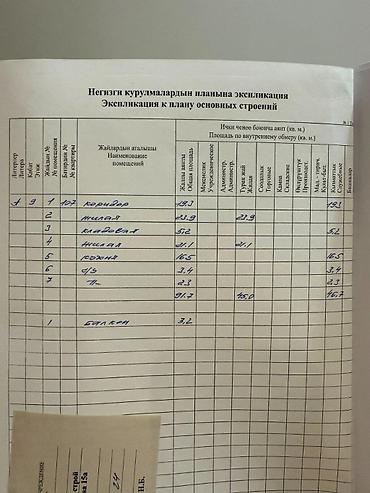 Негизги курулмалардын планына экспликация
Экспликация к плану основных строений
Ички ченөө боюнча аянт (кв. м.)
Площадь по внутреннему обмеру (кв. м.)
Литерлер
Литера
Кабат
Этаж
Жайдын №
№ помещения
Батирдин №
№ квартиры
Жайлардын аталышы
Наименование
помещений
Жалпы аянты
Общая площадь
Мекемелик
Учрежденческие
Администр.
Администр.
Турак жай
Жилая
Соодалык
Торговые
Кампа
Складские
Өндүрүштүк
Кызматтык
Служебные
Башкалар
А 9 1 107 коридор 19.3 19.3
2 жилая 23.9 23.9
3 кладовая 5.2 5.2
4 жилая 21.1 21.1
5 кухня 16.5 16.5
6 с/у 3.4 3.4
7 2.3 2.3
91.7 45.0 46.7
1 балкон 3.2
строй
на 15а
24
Н.Б.